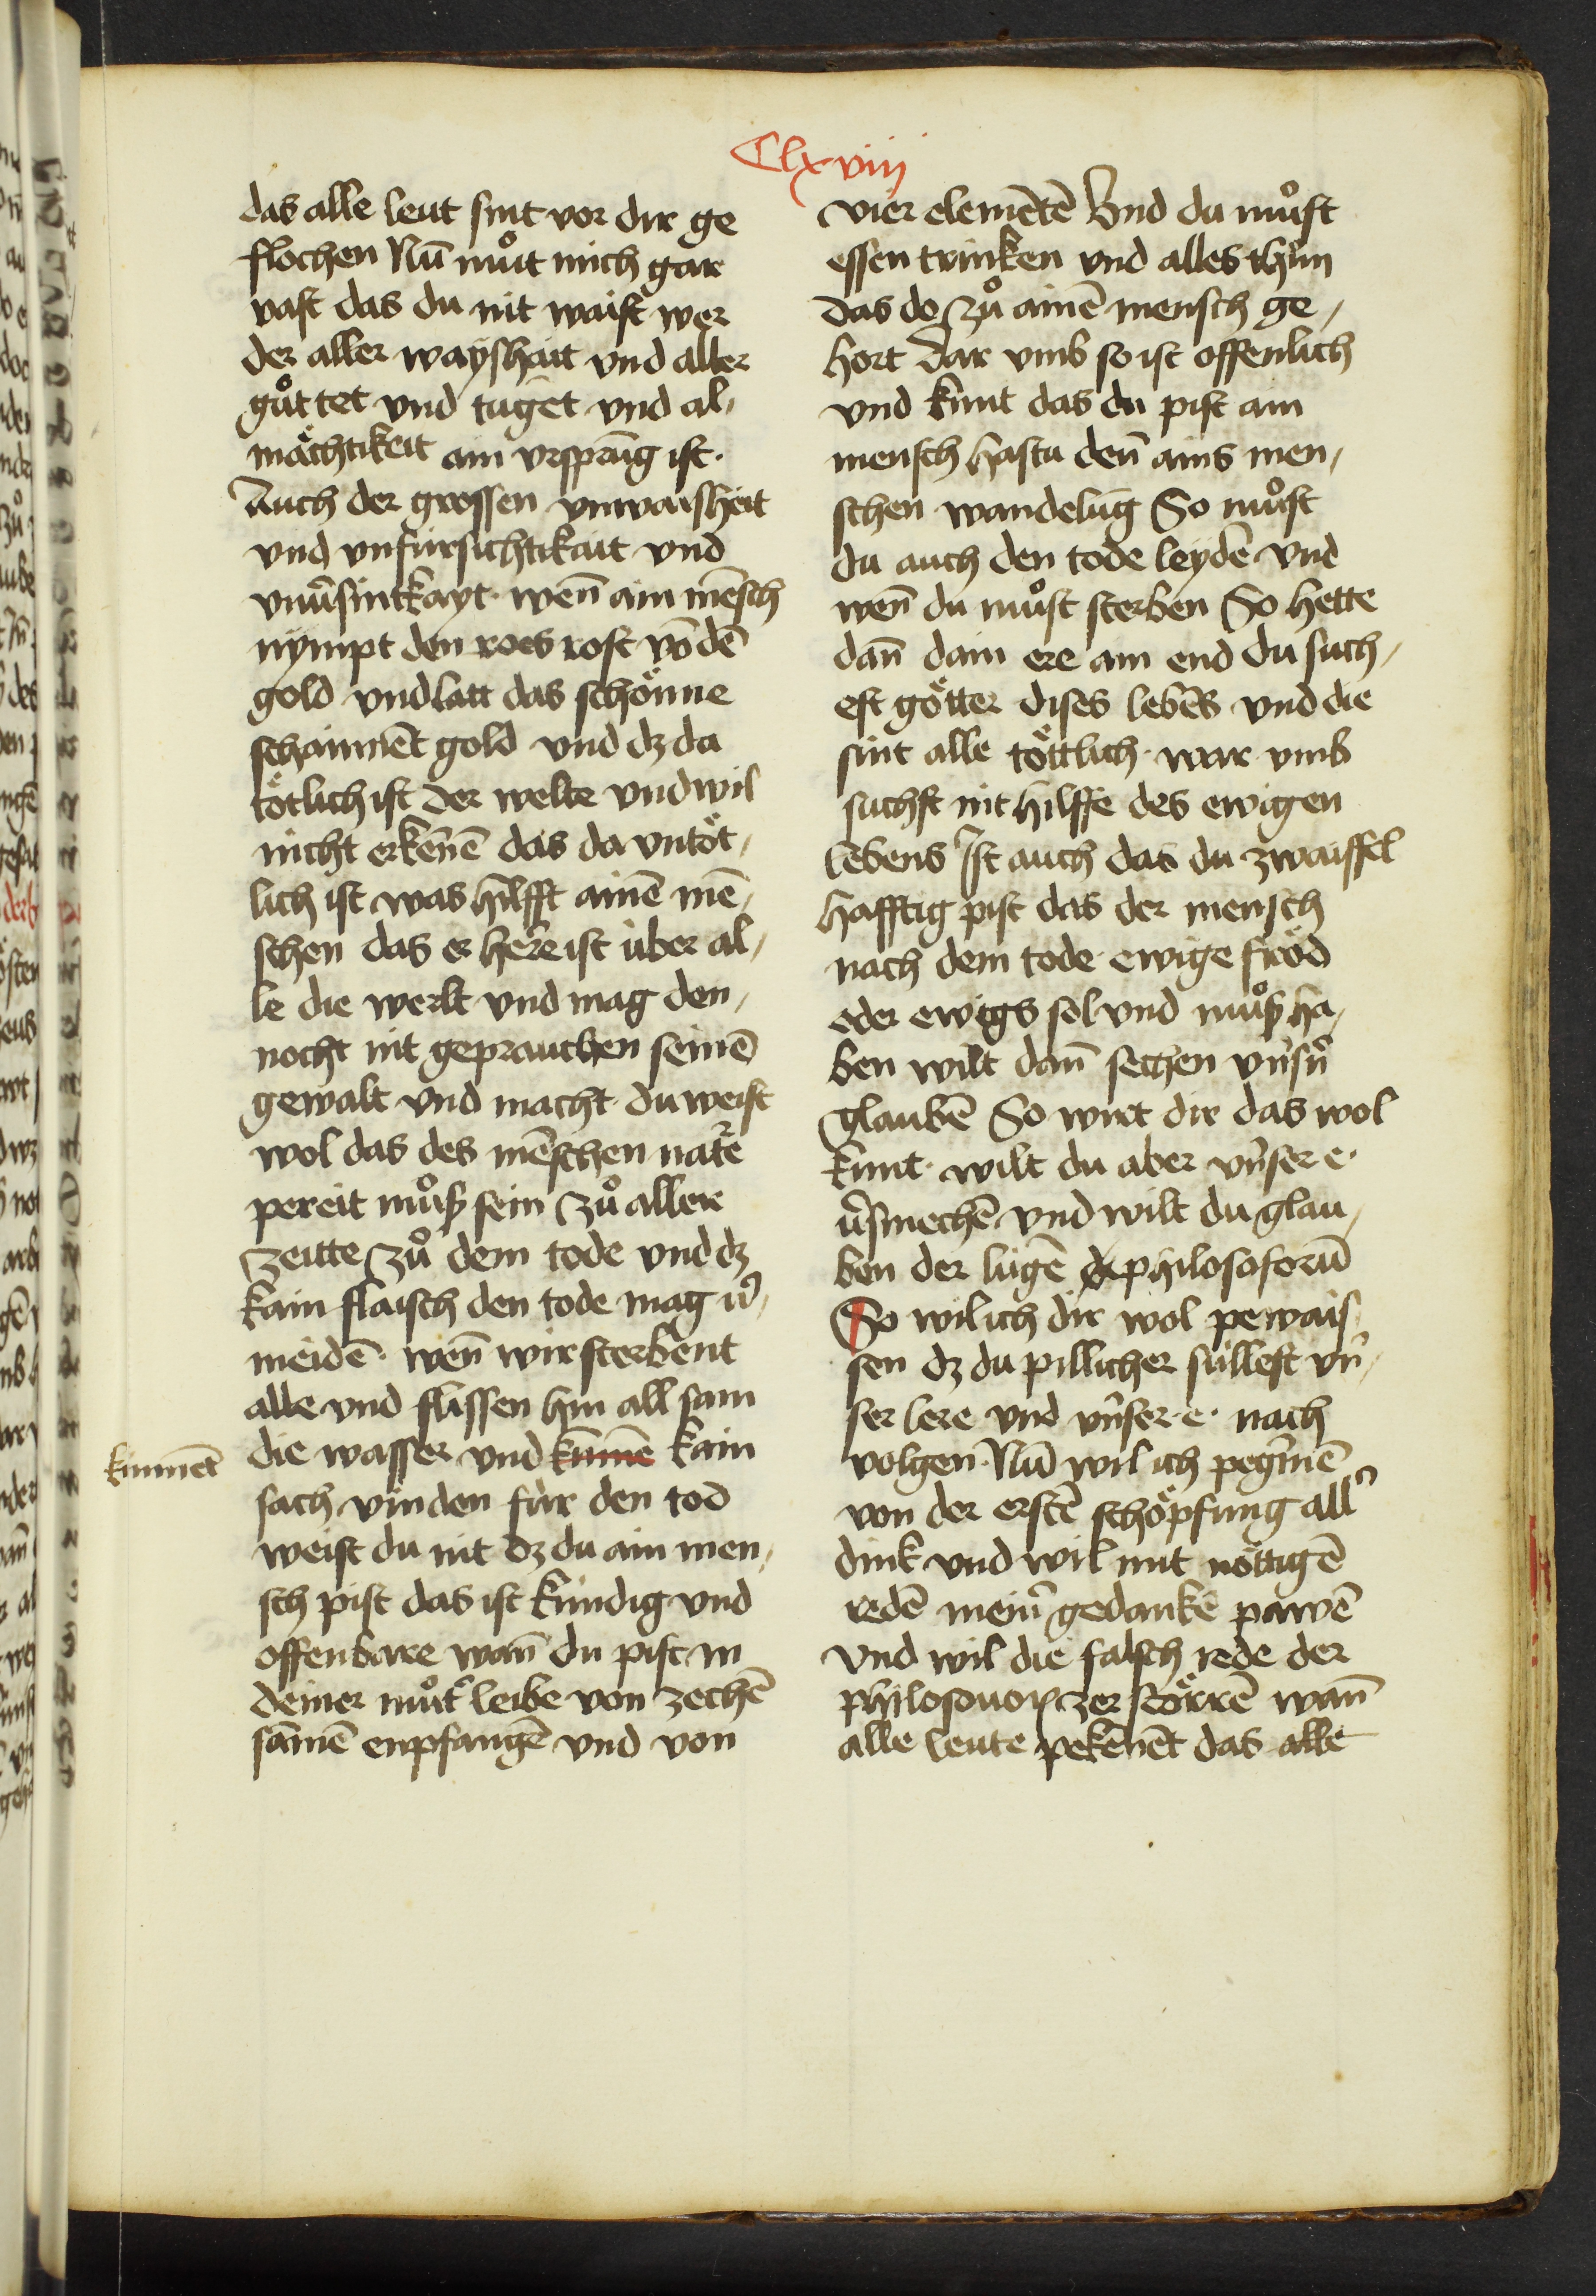 Clxviij
das alle leut sint vor dir ge
flochen Nū můt mich gar
vast das du nit waist wer
der aller wayshait vnd aller
gůttet vnd tuget vnd al,
mächtikeit ain vrsprūg ist.
Auch der grossen vnwaisheit
vnd vnfursichtikait vnd
wen̄ ain mēsch
nympt den roes rost vō dē
gold vnd latt das schönne
schainnēt gold vnd dz da
tötlich ist der welte vnd wil
nicht erkēnē das da vntöt,
lich ist was hilfft ainē mē,
schen das er herre ist über al,
le die werlt vnd mag den,
nocht nit geprauchen seinē
gewalt vnd macht du weist
wol das des mēschen natr̄e
pereit můß sein zů aller
zeitte zů dem tode vnd dz
kain flaisch den tode mag v̄,
meidē. wen̄ wir sterbent
alle vnd flissen hin all sam
kunnēt
die wasser vnd kunnē kain
sach vinden fùr den tod
weist du nit dz du ain men,
sch pist das ist kùndig vnd
offenbare wan̄ du pist in
deiner můt' leibe von zechē
sāmē enpfangē vnd von
vier elemētē Vnd du můst
essen trinken vnd alles thùn
das do zů ainē mensch ge,
hort dar vmb so ist offenlich
vnd kunt das du pist ain
mensch hastu den̄ ains men,
schen wandelūg So můst
du auch den tode leydē vnd
wen̄ du můst sterben So hette
dan̄ dain ere ain end du such,
est götter dises lebēs vnd die
sint alle töttlich. war vmb
suchst nit hilffe des ewigen
lebens Ist auch das du zwaiffel
hafftig pist das der mensch
nach dem tode ewige fröd
eder ewigs sol vnd můß ha,
ben wilt dan̄ sechen vn̄sn̄
glaubē So wirt dir das wol
kunt. wilt du aber vn̄ser e.
v̄smechē vnd wilt du glau,
ben der lùgē philosoforū
So wil ich dir wol pewais
sen dz du pillicher sùllest vn̄,
ser lere vnd vn̄ser e. nach
volgen. Nū wil ich pegīnē
von der erstē schöpfung all'
dink vnd wil mit nöttigē
redē mein̄ gedankē pawē
vnd wil die falsch rede der
zerstörrē wan̄
alle leute pekēnēt das alle